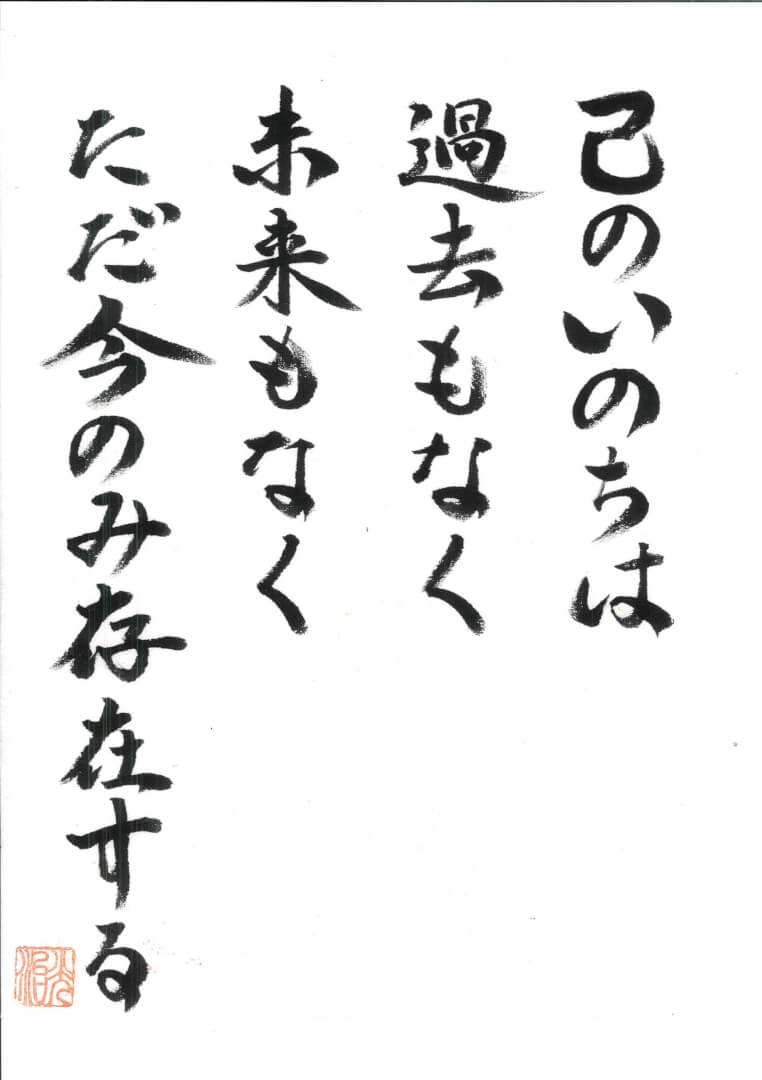 己のいのちは
過去もなく
未来もなく
ただ今のみ存在する